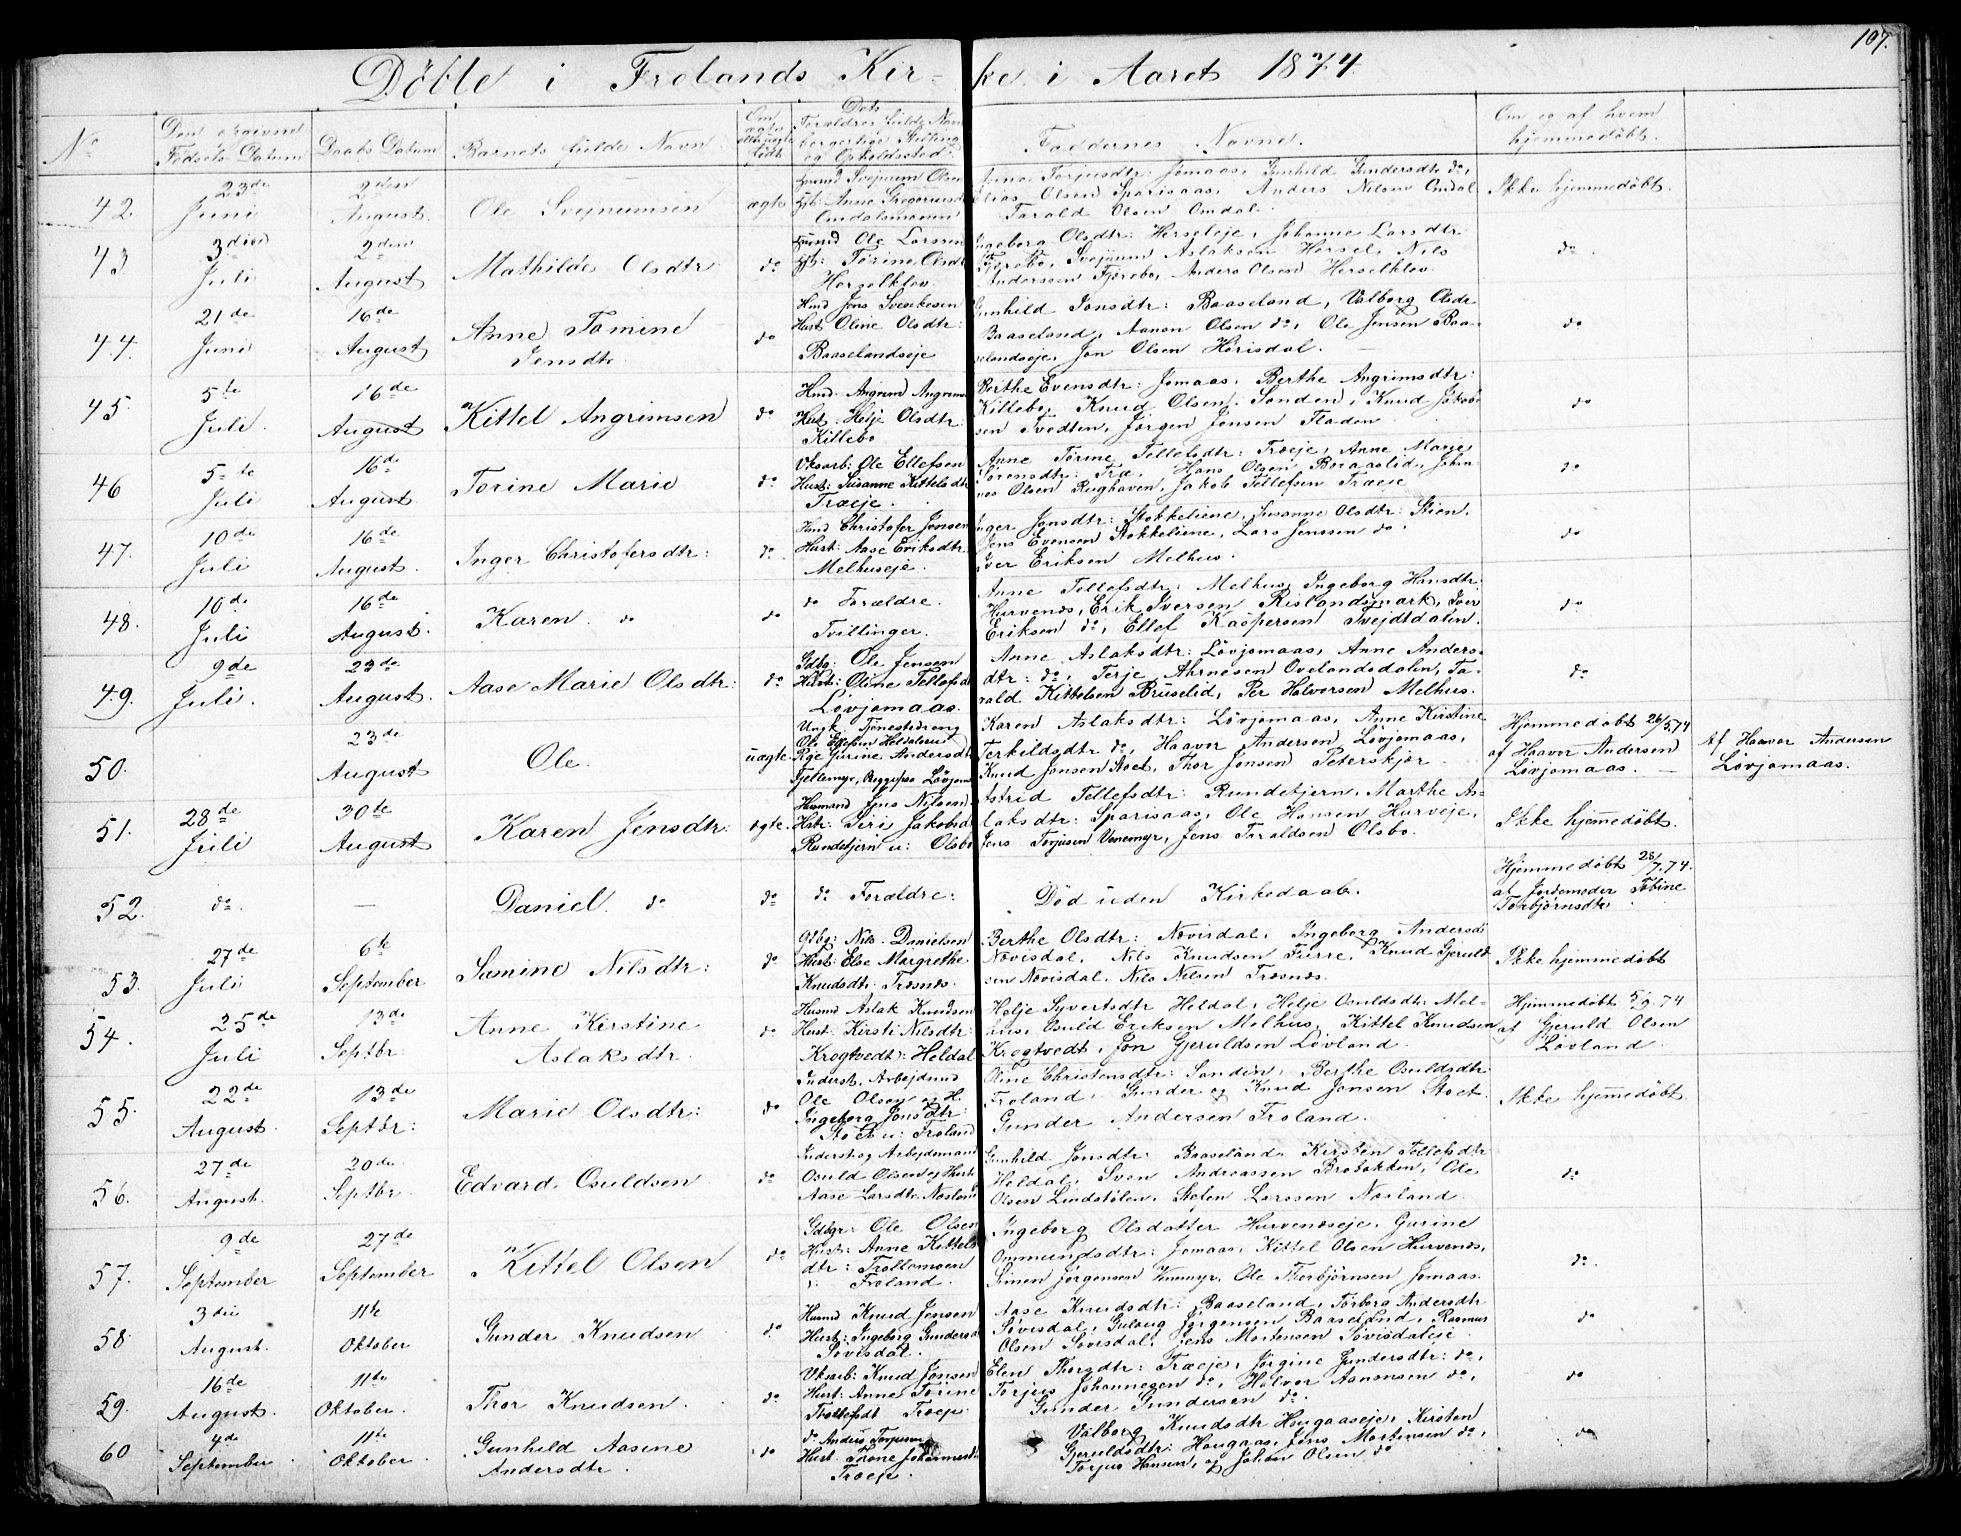 107.
Döbte i Frolands Kirke i Aaret 1874.
No
Den opgivne Fødsels Datum
Daabs Datum
Barnets fulde Navn
Om ægte eller uægte født
Dets Forældres fulde Navn borgerlige Stilling og Opholdssted
Faddernes Navne.
Om og af hvem hjemmedøbt.
42
23de Juni
2den August.
Ole Svejnumsen
ægte
Husmd Svejnum Olsen
Hst: Anne Gregoriusd
Omdalsmonen
Anne Torjusdtr: Jomaas, Gunhild Gundersdtr do,
Elias Olsen Sparisaas, Anders Nilsen Omdal
Tarald Olsen Omdal.
Ikke hjemmedøbt.
43
3die Juli
2den August
Mathilde Olsdtr
do
Husmd Ole Larssen
Hst: Torine Olsdt
Herselklev.
Ingeborg Olsdtr: Herseleje, Johanne Larsdtr:
Fjørebø, Svejnum Aslaksen Hersel, Nils
Anderssen Fjørebø, Anders Olsen Herselklev.
do
44.
21de Juni
16de August
Anne Tomine Jensdtr
do
Hmd Jens
Hust Oline Olsdtr:
Baaselandseje
Gunhild Jonsdtr: Baaseland, Valborg Olsdr
Baaseland, Aanon Olsen do, Ole Jensen Baa-
selandseje, Jon Olsen Hörisdal.
do
45.
5te Juli.
16de August
Kittel Angrimsen
do
Hmd. Angrim Angrims
Hust: Helje Olsdtr:
Killebo
Berthe Evensdtr: Jomaas, Berthe Angrimsdtr:
Killebo, Knud Olsen Sanden, Knud Jakob-
sen Tvedten, Jörgen Jensen Fladen
do
46
5te Juli
16de August
Torine Marie
do
Vksarb: Ole Ellefsen
Hust: Susanne Kittelsdtr
Træeje.
Anne Torine Tellefsdtr: Træeje, Anne Marie
Sörensdtr: Træ, Hans Olsen Boraaslid, Johan-
nes Olsen Rughaven, Jakob Tellefsen Træeje
do
47.
10de Juli
16de August.
Inger Christofersdtr:
do
Hmd Christofer Jonsen
Hust: Aase Eriksdtr:
Melhuseje.
Inger Jonsdtr: Stokkeliene, Susanne Olsdtr: Stien,
Jens Evensen Stokkeliene, Lars Jenssen do.
Iver Eriksen Melhus.
do
48.
10de Juli
16de August.
Karen. do
do
do Forældre.
Tvillinger.
Anne Tellefsdtr: Melhus, Ingeborg Hansdtr:
Hurvenes, Erik Iversen Rislandsmark, Iver
Eriksen do, Ellef Kaspersen Svejdtdalen.
do
49.
9de Juli.
23de August.
Aase Marie Olsdtr:
do
Gdbg: Ole Jensen
Hust: Oline Tellefsdt
Lövjomaas.
Anne Aslaksdtr: Lövjomaas, Anne Anders-
dtr: do, Terje Ahrnesen Ovelandsdalen, Ta-
rald Kittelsen Bruselid, Per Halvorsen Melhus.
do
50.
23de August
Ole.
uægte.
Ungk. Tjenestedreng
Ole Ellefsen
Pige Gurine Andersdt
Fjellemyr,
Karen Aslaksdtr: Lövjomaas, Anne Kirstine
Terkildsdtr do, Haavor Andersen Lövjomaas,
Knud Jonsen Stoet, Thor Jensen Peterskjær.
Hjemmedöbt 26/5.74
af Haavor Andersen
Lövjomaas.
Af Haavor Andersen
Lövjomaas.
51.
28de Juli
30te August
Karen Jensdtr:
ægte.
Husmand Jens Nilsen
Hstr: Siri Jakobsd
Rundetjern u: Olsbo
Astrid Tellefsdtr: Rundetjern, Marthe As-
laksdtr: Sparisaas, Ole Hansen Hurveje,
Jens Torjusen Venemyr, Jens Taraldsen Olsbo.
Ikke hjemmedøbt.
52.
do
—
Daniel. do
do
do Forældre:
Död uden Kirkedaab.
Hjemmedöbt 28/7.74.
af Jordemoder Tobine
Torbjörnsdtr
53.
27de Juli
6te September
Samine Nilsdtr:
do
Gdbg: Nils Danielsen
Hust: Else Margrethe
Knudsdtr: Træsnes.
Berthe Olsdtr: Novisdal, Ingeborg Andersd
Novisdal, Nils Knudsen Furre, Knud Gjeruld-
sen Novisdal, Nils Nilsen Træsnes.
Ikke hjemmedöbt
54.
25de Juli
13de Septbr:
Anne Kirstine Aslaksdtr.
do
Husmd Aslak Knudsen
Hust: Kirsti Nilsdtr:
Krogtvedt: Heldal
Helje Syvertsdtr Heldal, Helje Osuldsdtr: Mel-
hus, Osuld Eriksen Melhus, Kittel Knudsen
Krogtvedt, Jon Gjeruldsen Lövland.
Hjemmedöbt 5/9.74
af Gjeruld Olsen
Lövland.
55.
22de August.
13de Septbr:
Marie Olsdtr:
do
Inderst. Arbejdsmd
Ole Olsen og H.
Ingeborg Jonsdtr:
Stoet u: Froland
Oline Christensdtr: Sanden, Berthe Osuldsdtr
Froland, Gunder og Knud Jonsen Stoet.
Gunder Andersen Froland.
Ikke hjemmedøbt.
56.
27de August.
20de Septbr.
Edvard Osuldsen
do
Inderst og Arbejdsmand
Osuld Olsen og Hust:
Aase Larsdtr: Næsland
Gunhild Jonsdtr: Baaseland, Kirsten Tellefsdtr
Heldal, Sven Andreassen Brobakken, Ole
Olsen Lindstølen, Stefen Larssen Næsland.
do
57.
9de September
27de September
Kittel Olsen
do
Gdbgr: Ole Olsen
Hust: Anne Kittels
dtr: Trollemoen
Froland.
Ingeborg Olsdatter Hurvenæseje, Gurine
Ommundsdtr: Jomaas, Kittel Olsen Hurvenæs,
Simen Jørgensen Vinemyr, Ole Thorbjörnsen Jomaas.
do.
58.
3die August.
11te Oktober
Gunder Knudsen
do
Husmd Knud Jensen
Hust: Ingeborg Gundersd
Sovisdal.
Aase Knudsdtr: Baaseland, Torborg Andersdtr
Søvisdal, Gulaug Jörgensen Baaseland, Rasmus
Olsen Sovisdal, Jens Mortensen Søvisdaleje.
do
59.
16de August.
11te Oktober.
Thor Knudsen.
do
Vksarb: Knud Jensen
Hust: Anne Torine
Thollefsdt Træep.
Elen Thorsdtr: Træeje, Jörgine Gundersdtr: do,
Torjus Johannesen do, Halvor Aanonsen do,
Gunder Gundersen do.
do
60
4de September
11te Oktober.
Gunhild Aasine Andersdtr.
do
do Anders Torjusen
Hust: Trone Johannesdt
Træep.
Valborg Knudsdtr Hougaaseje, Kirsten
Gjeruldsdtr: Hougaas, Jens Mortensen do,
Torjus Hansen, og Johan Olsen do
do